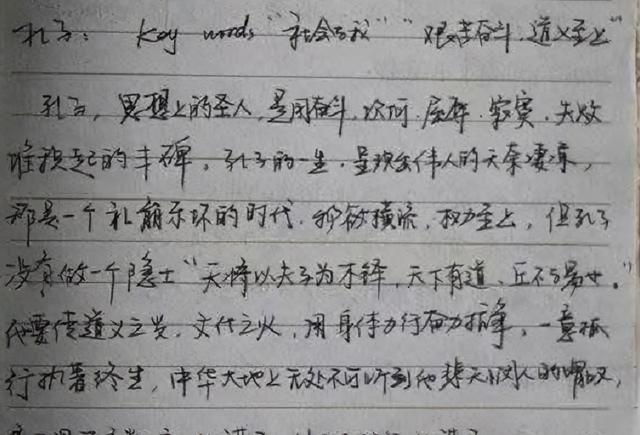 孔子： Key words "社会与我" "艰苦奋斗，道义至上"
孔子，思想上的圣人，是用奋斗，坎坷，屈辱，寂寞，失败
堆积起的丰碑。孔子的一生，呈现伟人的天荒凄凉，
那是一个礼崩乐坏的时代，物欲横流，权力至上，但孔子
没有做一个隐士"天将以夫子为木铎，天下有道，丘不与易也。"
他要传道义之光，文化之火，用身体力行奋力抗争，一意孤
行执著终生，中华大地上无处不可听到他悲天悯人的嘴叹，